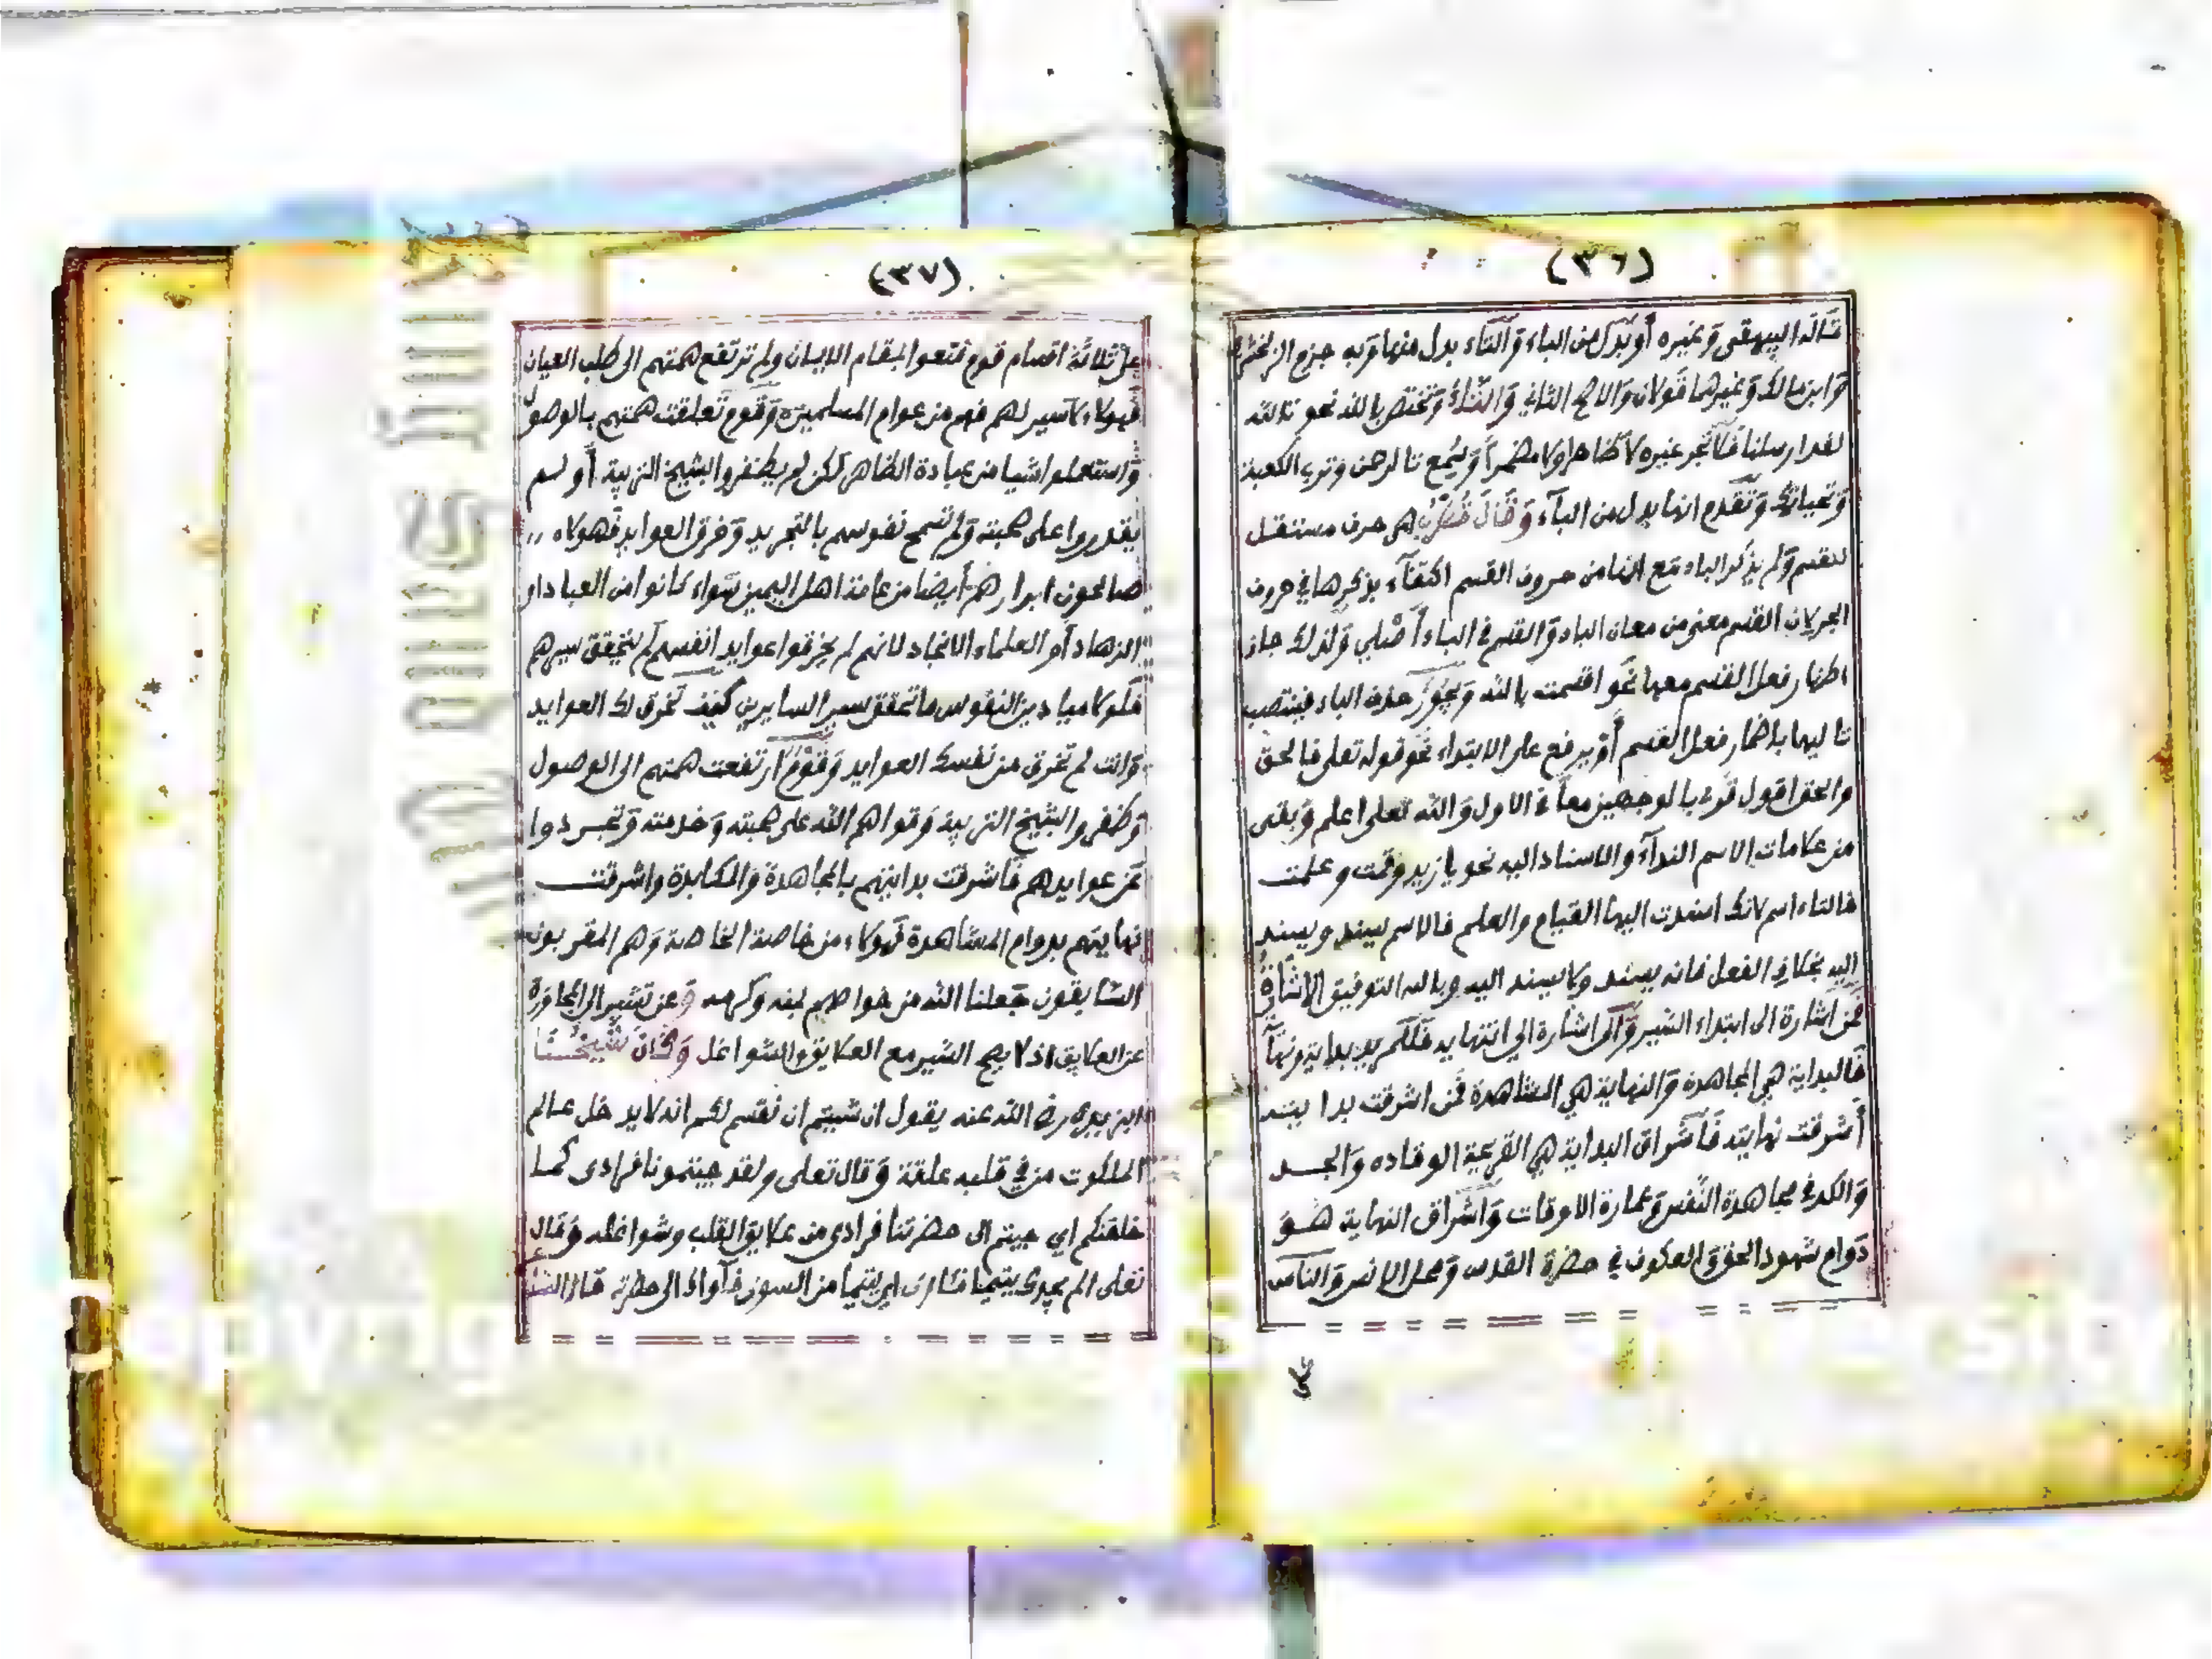 (٣٦)
قاله البيهقي وغيره أو بدل من الباء والتاء بدل منها وبه جزم الزمخشري
وابن مالك وغيرهما قولان والاصح الثاني والتاء وتختص بالله نحو تالله
لقد ارسلنا فلا تجر غيره لا ظاهرا ولا مضمرا وسمع تالرحمن وترب الكعبة
وتحياتك وتقدم انها بدل من الباء وقال قطرب هي حرف مستقل
للقسم ولم يذكر الباء مع انها من حروف القسم اكتفاء بذكرها في حروف
الجر لان القسم معنى من معان الباء والقسم في الباء أصلي ولذلك جاز
اظهار فعل القسم معها نحو اقسمت بالله ويجوز حذف الباء فينتصب
تاليها باضمار فعل القسم أو يرفع على الابتداء نحو قوله تعلى فالحق
والحق اقول قرء بالوجهين معا في الاول والله تعلى اعلم وبقى
من علامات الاسم النداء والاسناد اليه نحو يا زيد وقمت وعلمت
فالتاء اسم لانك اسندت اليها القيام والعلم فالاسم يسند ويسند
اليه بخلاف الفعل فانه يسند ولا يسند اليه وبالله التوفيق الاشارة
فمن اشارة الى ابتداء السير والى اشارة الي انتهايه فلكم يد بداية ونهاية
فالبداية هي المجاهدة والنهاية هي المشاهدة فمن اشرقت بدايته
أشرقت نهايته فاشراق البداية هي القريحة الوقاده والجد
والكد في مجاهدة النفس وعمارة الاوقات واشراق النهاية هو
دوام شهود الحق والعكوف في حضرة القدس ومحل الانس والناس
على
(٣٧)
على ثلاثة اقسام قوم قنعوا بمقام الايمان ولم ترتفع همتهم الى طلب العيان
فهولاء لا سير لهم فهم من عوام المسلمين وقوم تعلقت همتهم بالوصول
واستعملوا شيا من عبادة الظاهر لكن لم يظفروا بشيخ التربية أو لم
يقدروا على صحبته ولم تسمح نفوسهم بالتجريد وخرق العوايد فهولاء
صالحون ابرار هم أيضا من عامة اهل اليمين سواء كانوا من العباد او
الزهاد أو العلماء الانجاد لانهم لم يخرقوا عوايد انفسهم لم يتحقق سيرهم
فلولا ميادين النفوس ما تحقق سير السايرين كيف تخرق لك العوايد
وانت لم تخرق من نفسك العوايد وقوم ارتفعت همتهم الى الوصول
وظفروا بشيخ التربية وقواهم الله على صحبته وخدمته وتجردوا
عن عوايدهم فاشرقت بدايتهم بالمجاهدة والمكابدة واشرقت
نهايتهم بدوام المشاهدة فهولاء من خاصة الخاصة وهم المقربون
السابقون جعلنا الله من خواصهم بمنه وكرمه وعن تشير الى المجاوزة
عن العلايق اذ لا يصح السير مع العلايق والشواغل وكان شيخنا
البزيدي رضي الله عنه يقول ان شيتم ان نقسم لكم انه لا يدخل عالم
الملكوت من في قلبه علقة وقال تعلى ولقد جيتمونا فرادى كما
خلقنكم اي جيتم الى حضرتنا فرادى من علايق القلب وشواغله وقال
تعلى الم يجدك يتيما فئاوى اي يتيما من السوى فآواك الى حضرته قال